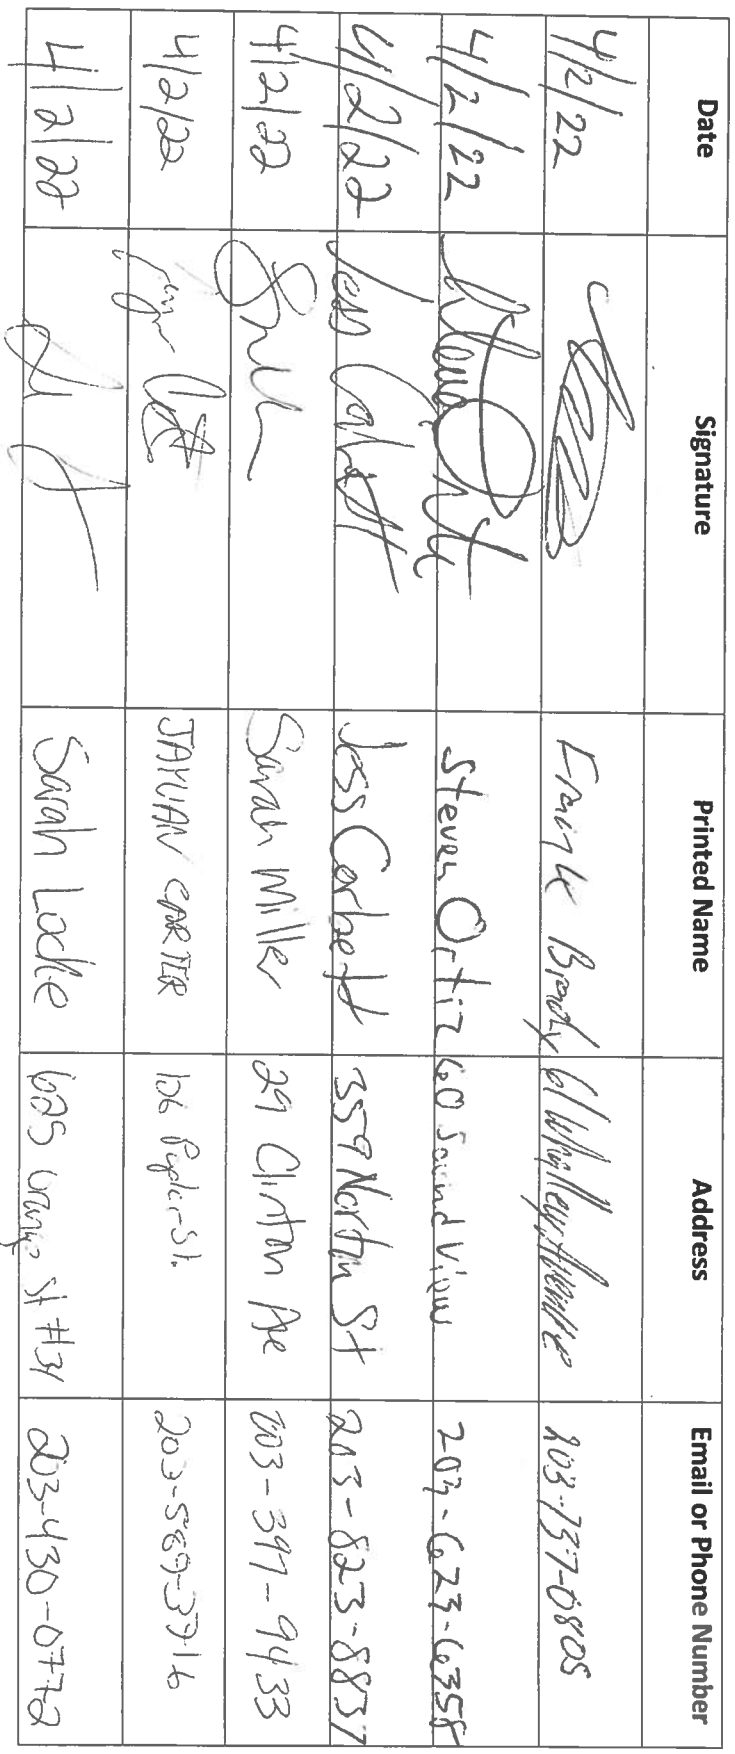 Date Signature Printed Name Address Email or Phone Number
4/2/22 Frank Brady 61 Whalley Avenue 203-737-0805
4/2/22 Steven Ortiz 60 Sound View 203-623-6358
4/2/22 Jess Corbett Jess Corbett 359 North St 203-823-8837
4/2/22 Sarah Miller 29 Clinton Ave 203-397-9433
4/2/22 CARTER 106 St. 203-589-3716
4/2/22 Sarah Locke 625 Orange St #31 203-430-0772